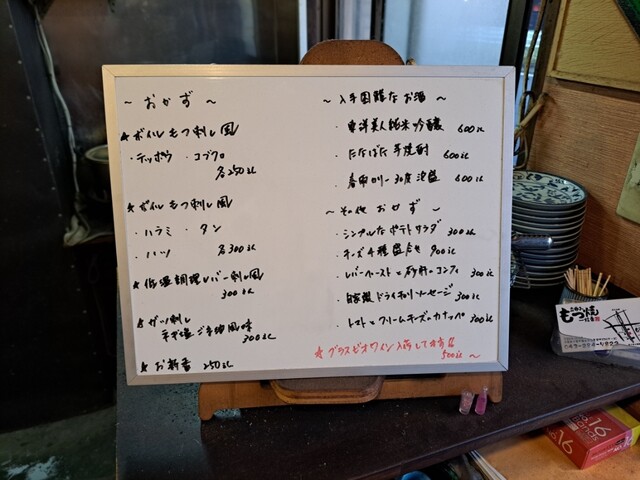 ～ おかず ～
★ボイルもつ刺し風
・テッポウ ・コブクロ
各250エン
★ボイルもつ刺し風
・ハラミ ・タン
・ハツ 各300エン
★低温調理レバー刺し風
300エン
★ガツ刺し
ネギ塩ゴマ油風味
300エン
★お新香 250エン
～入手困難なお酒～
・東洋美人純米吟醸 600エン
・たなばた芋焼酎 600エン
・30度泡盛 600エン
～その他おかず～
・シンプルなポテトサラダ 300エン
・チーズ4種盛合せ 900エン
・レバーペーストと砂肝のコンフィ 300エン
・自家製ドライチョリソーセージ 300エン
・トマトとクリームチーズのカナッペ 300エン
★グラスビオワイン入荷してます!!
500エン～
もつ焼
16
16